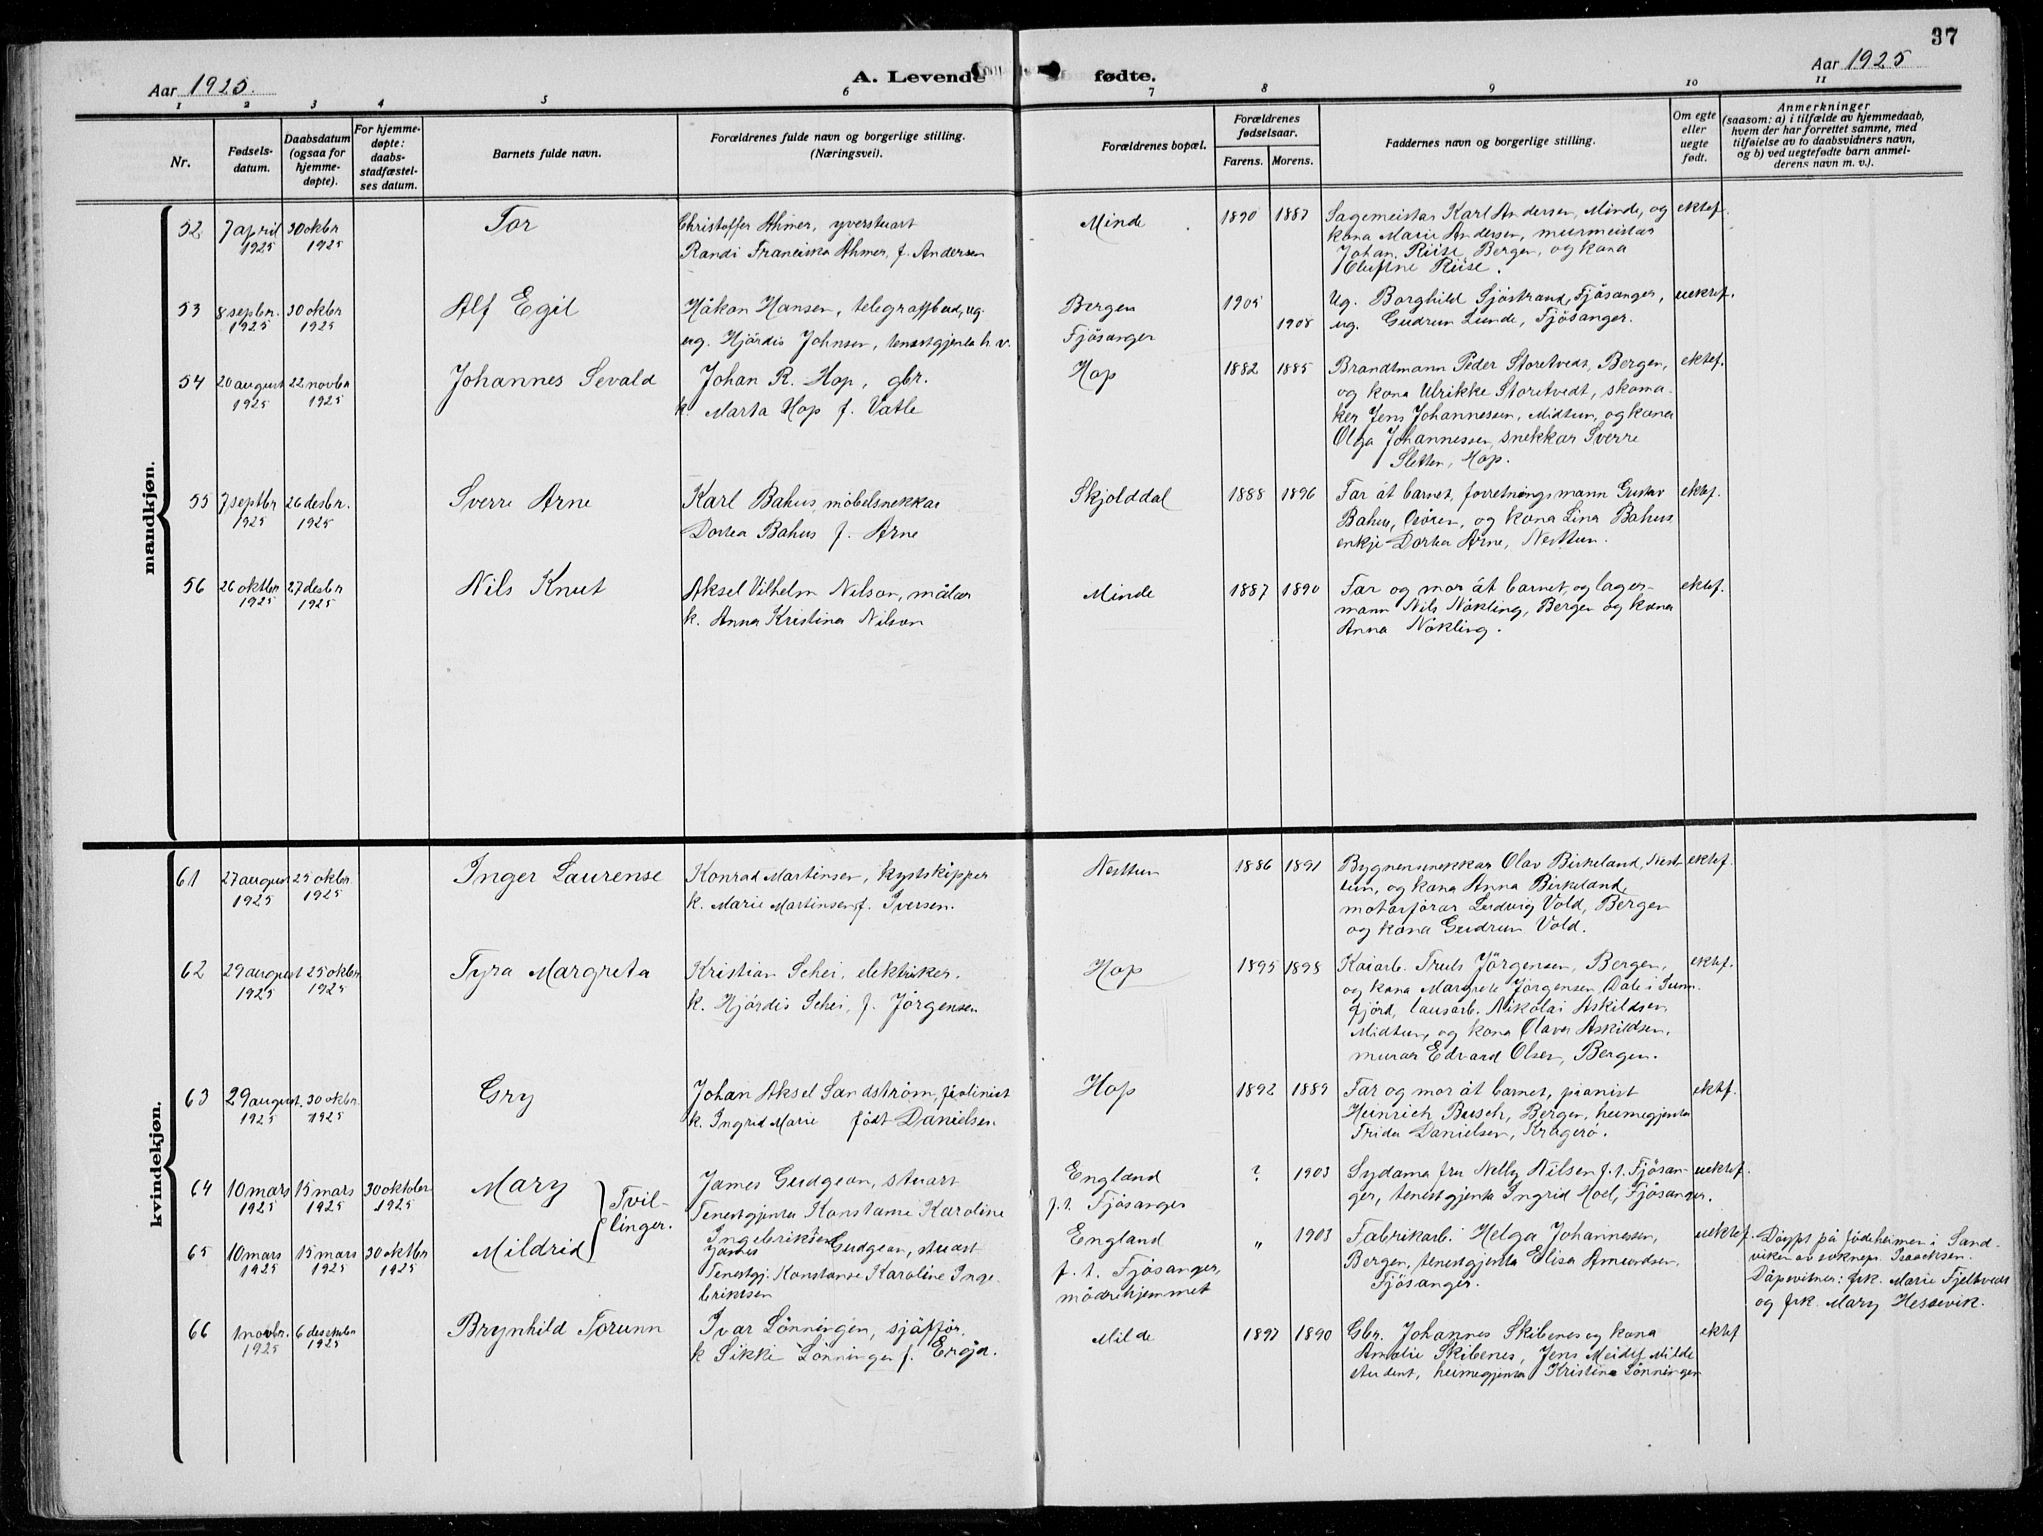 37
Aar 1925.
A. Levende fødte.
Aar 1925
1 2 3 4 5 6 7 8 9 10 11
Nr.
Fødsels-
datum.
Daabsdatum
(ogsaa for
hjemme-
døpte).
For hjemme-
døpte:
daabs-
stadfæstel-
ses datum.
Barnets fulde navn.
Forældrenes fulde navn og borgerlige stilling.
(Næringsvei).
Forældrenes bopæl.
Forældrenes
fødselsaar.
Farens. Morens.
Faddernes navn og borgerlige stilling.
Om egte
eller
uegte
født.
Anmerkninger
(saasom: a) i tilfælde av hjemmedaab,
hvem der har forrettet samme, med
tilføielse av to daabsvidners navn,
og b) ved uegtefødte barn anmel-
derens navn m. v.).
mandkjøn.
52 7 april 1925 30 oktbr 1925 Tor
Christoffer Ahmer, yverstuart
Randi Franciska Ahmer, f. Andersen
Minde 1890 1887
Sagemeistar Karl Andersen, Minde, og
kona Marie Andersen, murmeistar
Johan Riise Bergen, og kona
Riise.
ektef.
53 8 septbr. 1925 30 oktbr 1925 Alf Egil
Håkon Hansen, telegrafbud, ug.
ug. Hjördis Johnsen, tenestgjenta h. v.
Bergen
Fjösanger
1905 1908
Ug. Borghild Sjöstrand, Fjösanger,
ug. Gudrun Lunde, Fjösanger.
uektef.
54 20 august 1925 22 novbr 1925 Johannes Sevald
Johan R. Hop, gbr.
k. Marta Hop f. Vatle
Hop 1882 1885
Brandtmann Peder Storetvedt, Bergen,
og kona Ulrikke Storetvedt, skoma-
ker Jens Johannessen, Midtun, og kona
Olga Johannessen, snekkar Sverre
Sletten, Hop.
ektef.
55 7 septbr 1925 26 desbr. 1925 Sverre Arne
Karl Bahus, möbelsnekkar
Dortea Bahus f. Arne
Skjolddal 1888 1896
Far åt barnet, forretningsmann Gustav
Bahus, Osören, og kona Lina Bahus
enkje Dortea Arne, Nesttun.
ektef.
56 26 oktbr 1925 27 desbr 1925 Nils Knut
Aksel Vilhelm Nilson, målar
k. Anna Kristina Nilson
Minde 1887 1890
Far og mor åt barnet, og lager-
mann Nils Nökling, Bergen og kona
Anna Nökling.
ektef.
kvindekjøn.
61 27 august 1925 25 oktbr. 1925 Inger Laurense
Konrad Martinsen, kystskipper
k. Marie Martinsen f. Iversen.
Nesttun 1886 1891
Bygnensnekkar Olav Birkeland, Nest-
tun, og kona Anna Birkeland,
motorförar Ludvig Vold, Bergen
og kona Gudrun Vold.
ektef.
62 29 august 1925 25 oktbr. 1925 Tyra Margreta
Kristian Schei, elektriker.
k. Hjördis Schei, f. Jörgensen
Hop 1895 1898
Kaiarb. Truls Jörgensen, Bergen,
og kona Margrete Jörgensen, Dale i Sunn-
fjord, lausarb. Nikolai Askildsen
Midtun, og kona Olava Askildsen,
murar Edvard Olsen, Bergen.
ektef.
63 29 august. 1925 30 oktbr. 1925 Gry
Johan Aksel Sandström, fiolinist
k. Ingrid Marie født Danielsen
Hop 1892 1889
Far og mor åt barnet, pianist
Heinrich Busch, Bergen, heimegjenta
Frida Danielsen, Kragerö.
ektef.
64 10 mars 1925 15 mars 1925 30 oktober 1925 Mary
Tvil-
linger.
James Gudgeon, stuart
Tenestgjenta Konstanse Karoline
Ingebriktsen
England
f. t. Fjösanger
? 1903
Sydama fru Nelly Nilsen f. t. Fjösan-
ger, tenestgjenta Ingrid Hoel, Fjösanger.
uektef.
65 10 mars 1925 15 mars 1925 30 oktbr 1925 Mildrid
James Gudgeon, stuart
Tenestgj. Konstanse Karoline Inge-
briktsen
England
f. t. Fjösanger,
mödrehjemmet
" 1903
Fabrikarb. Helga Johannessen,
Bergen, tenestgjenta Elisa Amundsen,
Fjösanger.
uektef.
Döypt på födeheimen i Sand-
viken av sokneprr. Isacksen.
Dåpsvitner: frk. Marie Fjeltvedt
og frk. Mary Hessevik.
66 1 novbr. 1925 6 desember 1925 Brynhild Torunn
Ivar Lönningen, sjåfför,
k Sikki Lönningen f. Erga.
Milde 1897 1890
Gbr. Johannes Skibenes og kona
Amalie Skibenes, Jens Meidel Milde
student, heimegjenta Kristina Lönningen
ektef